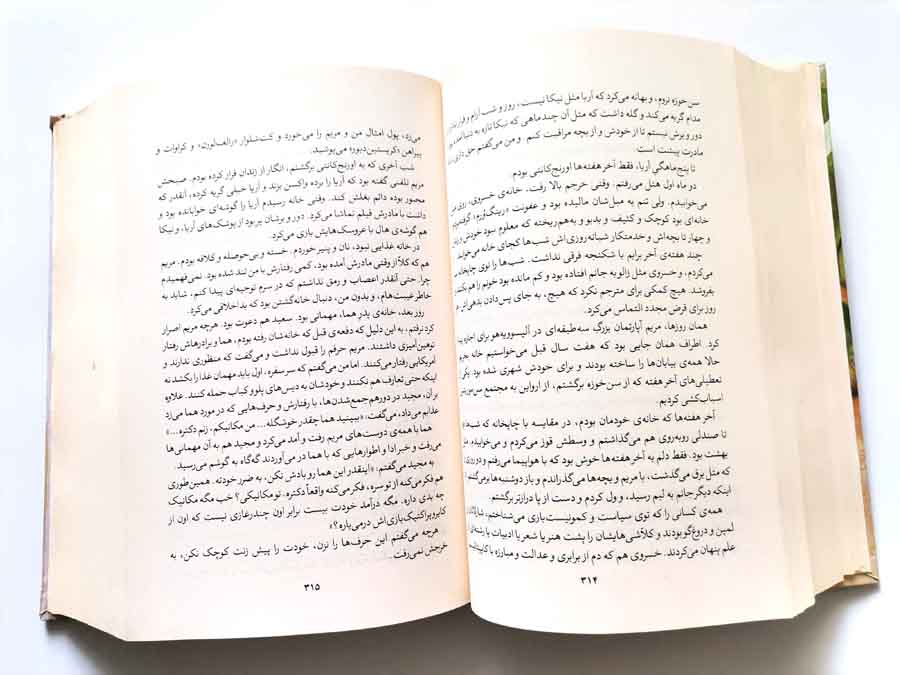 سن‌حوزه نروم، و بهانه می‌کرد که آریا مثل نیکا نیست، روز و شب آرام و قرار ندارد
مدام گریه می‌کند و گله داشت که مثل آن چند ماهی که نیکا تازه به دنیا آمده
دور و برش نیستم تا از خودش و از بچه مراقبت کنم و من می‌گفتم حق داری
مادرت پیشت است.
تا پنج‌ماهگی آریا، فقط آخر هفته‌ها اورنج‌کانتی بودم.
دو ماه اول هتل می‌رفتم. وقتی خرجم بالا رفت، خانه‌ی خسروی، روی
می‌خوابیدم. ولی تنم به مبل‌شان مالیده بود و عفونت «رینگ‌وُرم» گرفتم
خانه‌ای بود کوچک و کثیف و بدبو و به‌هم‌ریخته که معلوم بود خودش
و چهار تا بچه‌اش و خدمتکار شبانه‌روزی‌اش شب‌ها کجای خانه می‌خوابند
چند هفته‌ی آخر برایم با شکنجه فرقی نداشت. شب‌ها را توی چاپخانه
می‌کردم، و خسروی مثل زالو به جانم افتاده بود و کم مانده بود خونم را هم بکند
بفروشد. هیچ کمکی برای مترجم نکرد که هیچ، به جای پس‌دادن بدهی‌اش
روز برای قرض مجدد التماس می‌کرد.
همان روزها، مریم آپارتمان بزرگ سه‌طبقه‌ای در آلیسوویه‌هو برای اجاره
کرد. اطراف همان جایی بود که هفت سال قبل می‌خواستیم خانه بخریم
حالا همه‌ی بیابان‌ها را ساخته بودند و برای خودش شهری شده بود. یکی از
تعطیلی‌های آخر هفته که از سن‌حوزه برگشتم، از ارواین به مجتمع
اسباب‌کشی کردیم.
آخر هفته‌ها که خانه‌ی خودمان بودم، در مقایسه با چاپخانه که شب‌ها
تا صندلی روبه‌روی هم می‌گذاشتم و وسطش قوز می‌کردم و می‌خوابیدم
بهشت بود. فقط دلم به آخر هفته‌ها خوش بود که با هواپیما می‌رفتم و دو روزی
که مثل برق می‌گذشت، با مریم و بچه‌ها می‌گذراندم و باز دوشنبه‌ها برمی‌گشتم تا
اینکه دیگر جانم به لبم رسید، و ول کردم و دست از پا درازتر برگشتم.
همه‌ی کسانی را که توی سیاست و کمونیست‌بازی می‌شناختم، شارلاتان
لمپن و دروغ‌گو بودند و کلاشی‌هایشان را پشت هنر یا شعر یا ادبیات یا رشته‌ای
علم پنهان می‌کردند. خسروی هم که دم از برابری و عدالت و مبارزه با
۳۱۴
می‌زد، پول امثال من و مریم را می‌خورد و کت‌شلوار «رالف‌لورن» و کراوات و
پیراهن «کریستین‌دیور» می‌پوشید.
شب آخری که به اورنج‌کانتی برگشتم، انگار از زندان فرار کرده بودم. صبحش
مریم تلفنی گفته بود که آریا را برده واکسن بزند و آریا خیلی گریه کرده، آنقدر که
مجبور بوده دائم بغلش کند. وقتی خانه رسیدم آریا را گوشه‌ای خوابانده بود و
داشت با مادرش فیلم تماشا می‌کرد. دور و برشان پر بود از پوشک‌های آریا، و نیکا
هم گوشه‌ی هال با عروسک‌هایش بازی می‌کرد.
در خانه غذایی نبود، نان و پنیر خوردم. خسته و بی‌حوصله و کلافه بودم. مریم
هم که کلاً از وقتی مادرش آمده بود، کمی رفتارش با من تند شده بود. نمی‌فهمیدم
چرا. حتی آنقدر اعصاب و رمق نداشتم که در سرم توجیه‌ای پیدا کنم، شاید به
خاطر غیبت‌هام، و بدون من، دنبال خانه‌گشتن بود که بداخلاقی می‌کرد.
روز بعد، خانه‌ی پدر هما، مهمانی بود. سعید هم دعوت بود. هرچه مریم اصرار
کرد نرفتم، به این دلیل که دفعه‌ی قبل که خانه‌شان رفته بودم، هما و برادرهاش رفتار
توهین‌آمیزی داشتند. مریم حرفم را قبول نداشت و می‌گفت که منظوری ندارند و
آمریکایی رفتار می‌کنند. اما من می‌گفتم که سر سفره، اول باید مهمان غذا را بکشد نه
اینکه حتی تعارف هم نکنند و خودشان به دیس‌های پلو و کباب حمله کنند. علاوه
بر آن، مجید در دورهم‌جمع‌شدن‌ها، با رفتارش و حرف‌هایی که در مورد هما می‌زد
عذابم می‌داد، می‌گفت: «ببینید هما چقدر خوشگله... من مکانیکم، زنم دکتره...»
هما با همه‌ی دوست‌های مریم رفت و آمد می‌کرد و مجید هم به آن مهمانی‌ها
می‌رفت و خبر ادا و اطوارهایی که با هما در می‌آوردند گه‌گاه به گوشم می‌رسید.
به مجید می‌گفتم: «اینقدر این هما رو بادش نکن، به ضرر خودته. همین‌طوری
هم فکر می‌کنه از تو سره، فکر می‌کنه واقعاً دکتره. تو مکانیکی؟ خب مگه مکانیک
چه بدی داره. مگه درآمد خودت بیست برابر اون چندرغازی نیست که اون از
کایروپراکتیک‌بازی‌اش درمی‌یاره؟»
هرچه می‌گفتم این حرف‌ها را نزن، خودت را پیش زنت کوچک نکن، به
خرجش نمی‌رفت.
۳۱۵